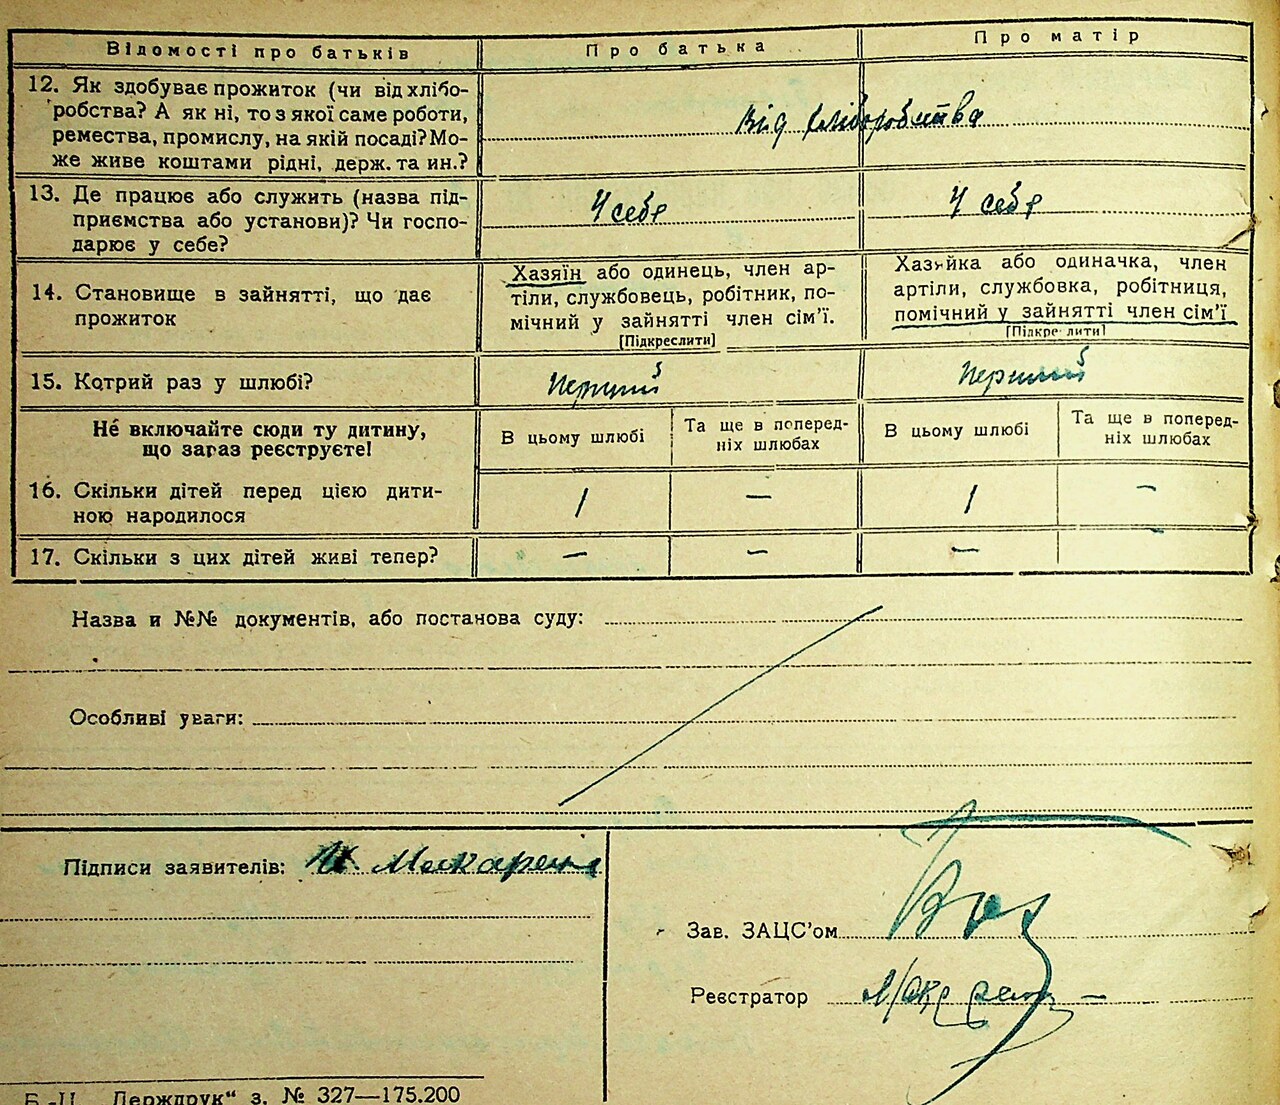 Відомості про батьків
Про батька
Про матір
12. Як здобуває прожиток (чи від хлібо-
робства? А як ні, то з якої саме роботи,
ремества, промислу, на якій посаді? Мо-
же живе коштами рідні, держ. та ин.?
від хліборобства
13. Де працює або служить (назва під-
приємства або установи)? Чи госпо-
дарює у себе?
У себе
У себе
14. Становище в зайнятті, що дає
прожиток
Хазяїн або одинець, член ар-
тілі, службовець, робітник, по-
мічний у зайнятті член сім'ї.
[Підкреслити]
Хазяйка або одиначка, член
артіли, службовка, робітниця,
помічний у зайнятті член сім'ї
[Підкреслити]
15. Котрий раз у шлюбі?
Перший
Перший
Не включайте сюди ту дитину,
що зараз реєструєте!
В цьому шлюбі
Та ще в поперед-
ніх шлюбах
В цьому шлюбі
Та ще в поперед-
ніх шлюбах
16. Скільки дітей перед цією дити-
ною народилося
1
—
1
—
17. Скільки з цих дітей живі тепер?
—
—
—
—
Назва и №№ документів, або постанова суду:
Особливі уваги:
Підписи заявителів:
Макарен
Зав. ЗАЦС'ом
Реєстратор
Держдрук“ з. № 327—175.200